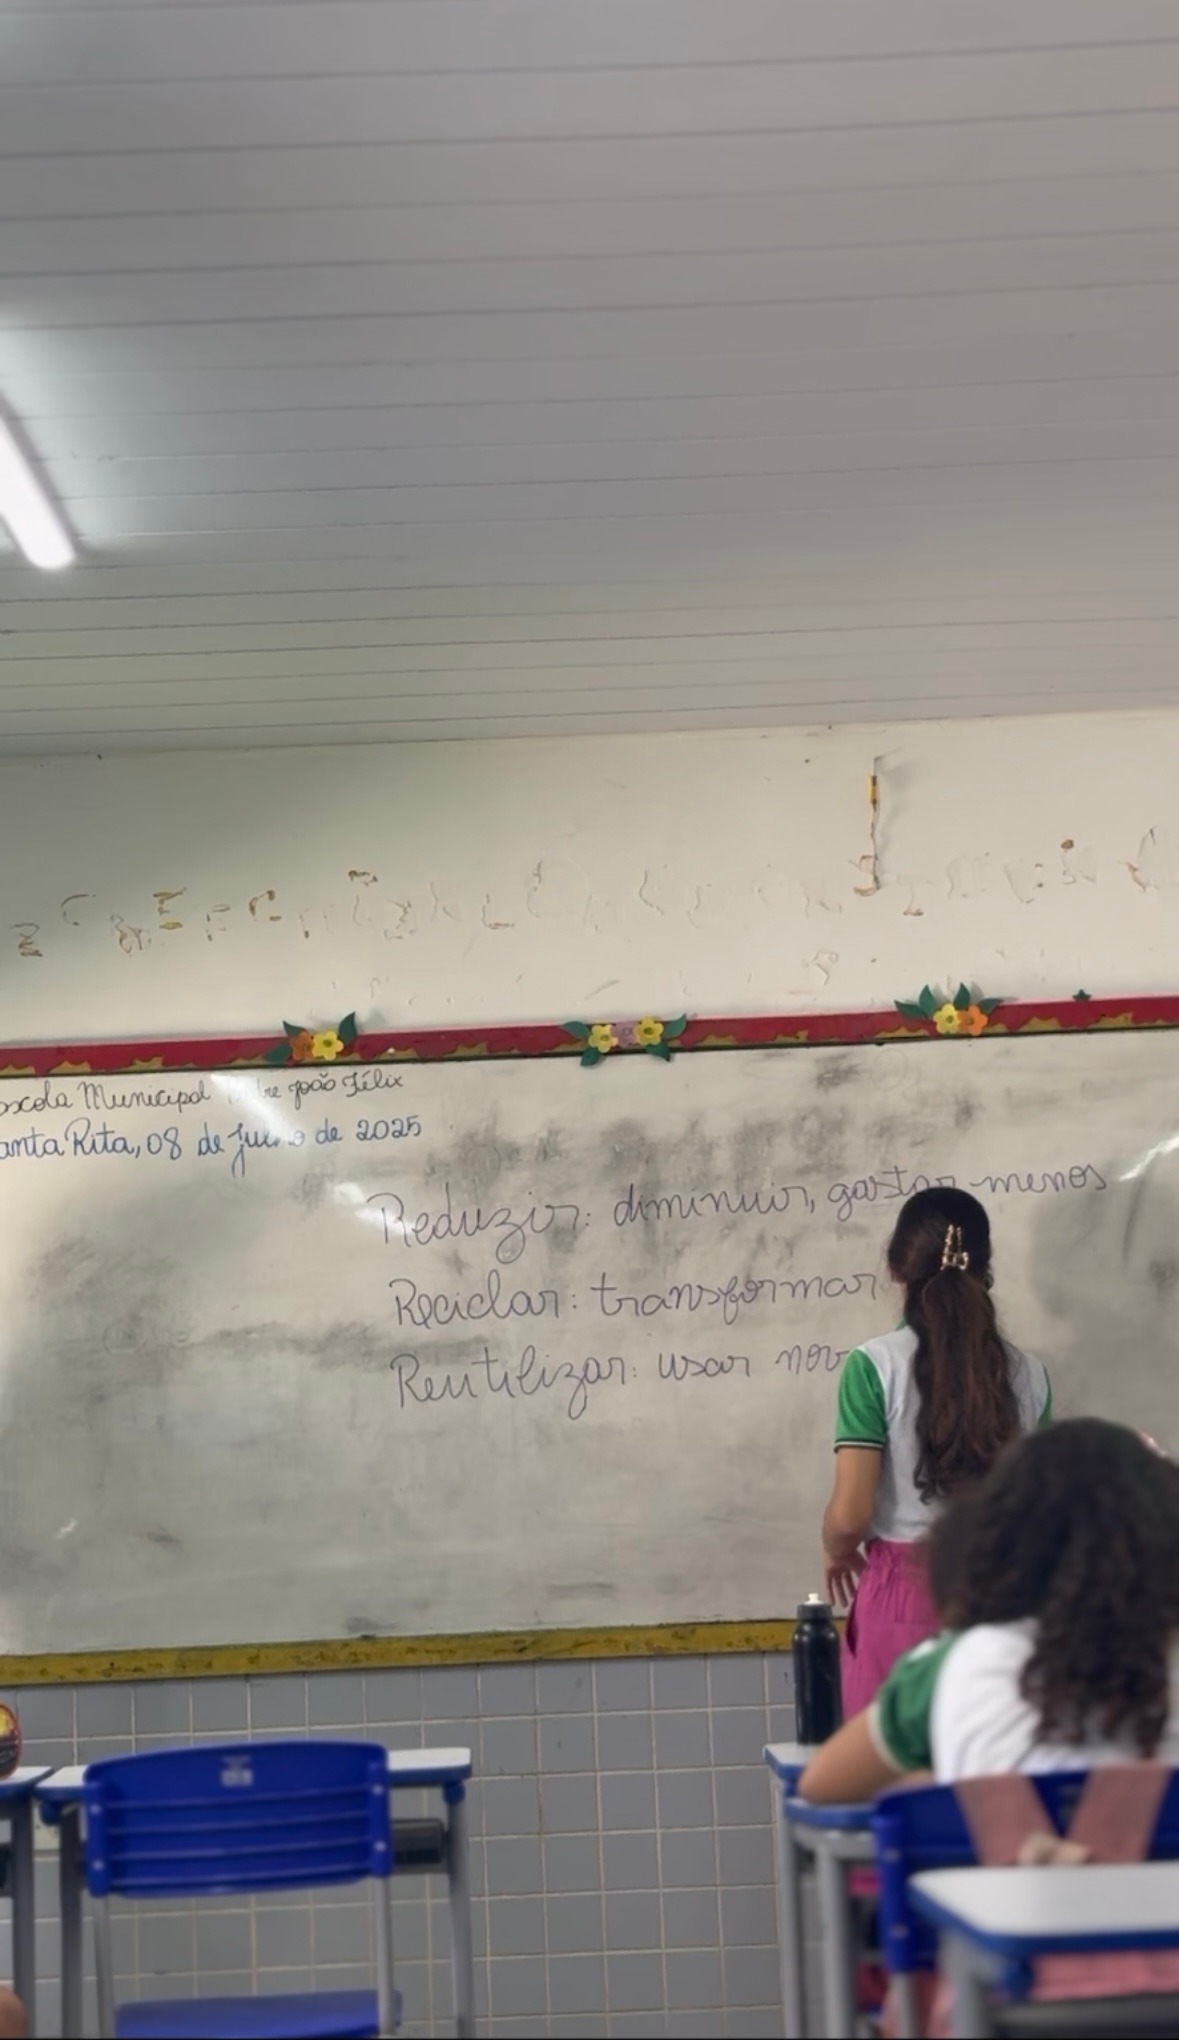 escola Municipal Padre João Félix
anta Rita, 08 de julho de 2025
Reduzir: diminuir, gastar menos
Reciclar: transformar
Reutilizar: usar nov